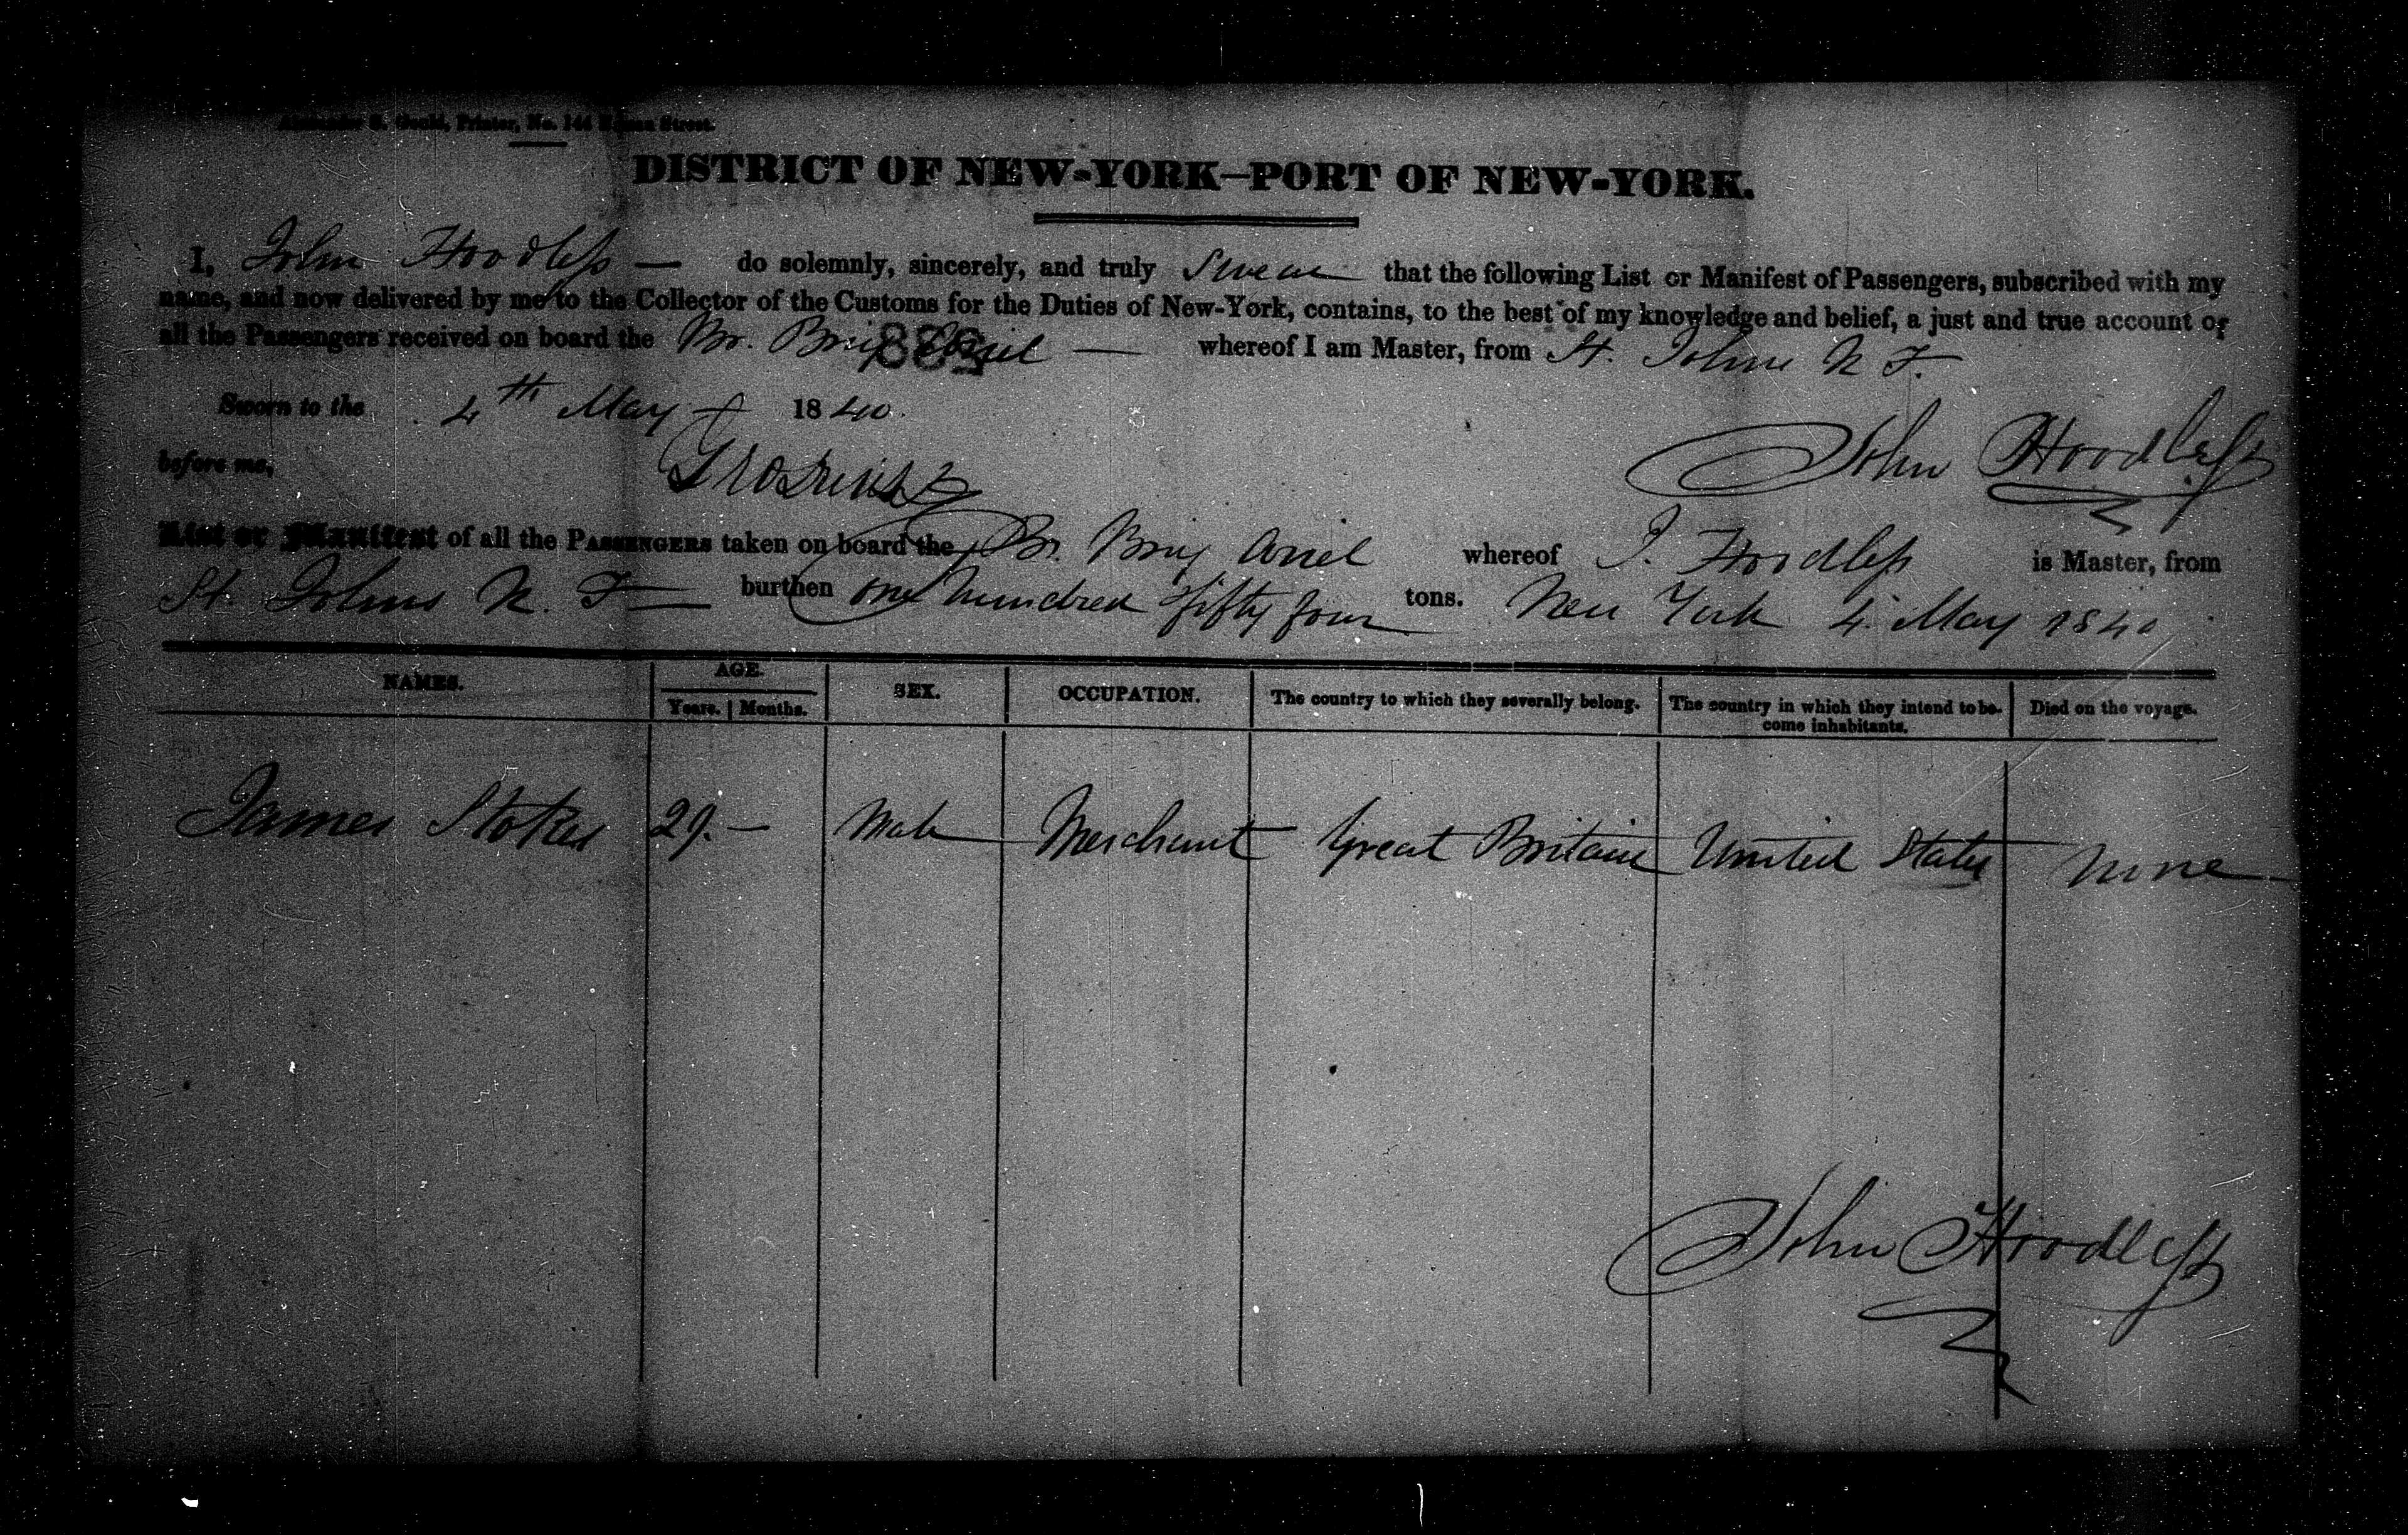 Printer, No. 144 Street.
DISTRICT OF NEW-YORK—PORT OF NEW-YORK.
I, John Hoodless — do solemnly, sincerely, and truly Swear that the following List or Manifest of Passengers, subscribed with my
name, and now delivered by me to the Collector of the Customs for the Duties of New-York, contains, to the best of my knowledge and belief, a just and true account of
all the Passengers received on board the Br. Brig Ariel — whereof I am Master, from St. Johns N F.
Sworn to the 4th May 1840.
before me,
John Hoodless
List or Manifest of all the PASSENGERS taken on board the Br. Brig Ariel whereof J. Hoodless is Master, from
St. Johns N. F — burthen one hundred fifty four tons. New York 4 May 1840
NAMES. AGE. SEX. OCCUPATION. The country to which they severally belong. The country in which they intend to be- Died on the voyage.
Years. Months. come inhabitants.
James Stokes 29. — Male Merchant Great Britain United States None
John Hoodless